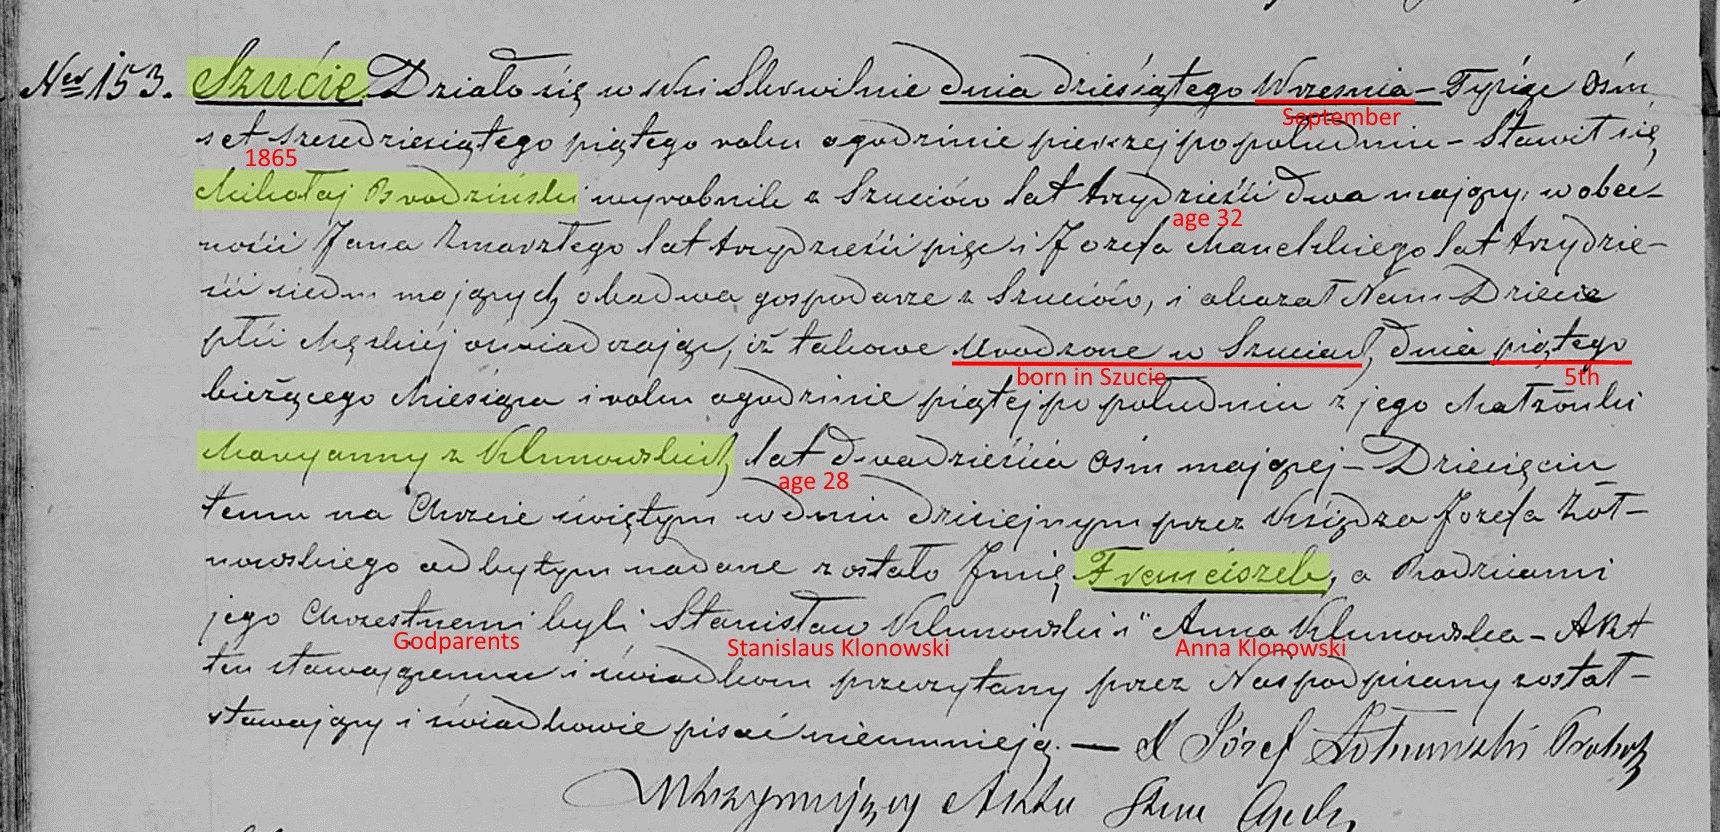 Ner 153. Szucie Działo się w Wsi Skrwilnie dnia dziesiątego Wrzesnia – Tysiąc Ośm
set szescdziesiątego piątego roku o godzinie pierszej po południu – Stawił się
Mikołaj Brodziński wyrobnik z Szuciów lat trzydzieści dwa mający, w obec-
ności Jana Zmarzłego lat trzydzieści pięć i Jozefa lat trzydzie-
ści siedm mających obadwa gospodarze z Szuciów, i okazał Nam Dziecie
płci Męskiej oświadczając, iż takowe Urodzone w Szuciach dnia piątego
bieżącego Miesiąca i roku o godzinie piątej po południu z jego Małżonki
Maryanny z Klunowskich lat dwadzieścia ośm mającej – Dziecięciu
temu na Chrzcie świętym w dniu dzisiejszym przez Księdza Jozefa Żoł-
nowskiego odbytym nadane zostało Jmię Franciszek, a Rodzicami
jego Chrzestnemi byli Stanisław Klunowski i Anna Klunowska – Akt
ten stawającemu i świadkom przeczytany przez Nas podpisany został –
stawający i świadkowie pisać nieumnieją. — X Józef
Utrzymujący Akta Stanu
September
1865
age 32
born in Szucie
5th
age 28
Godparents
Stanislaus Klonowski
Anna Klonowski